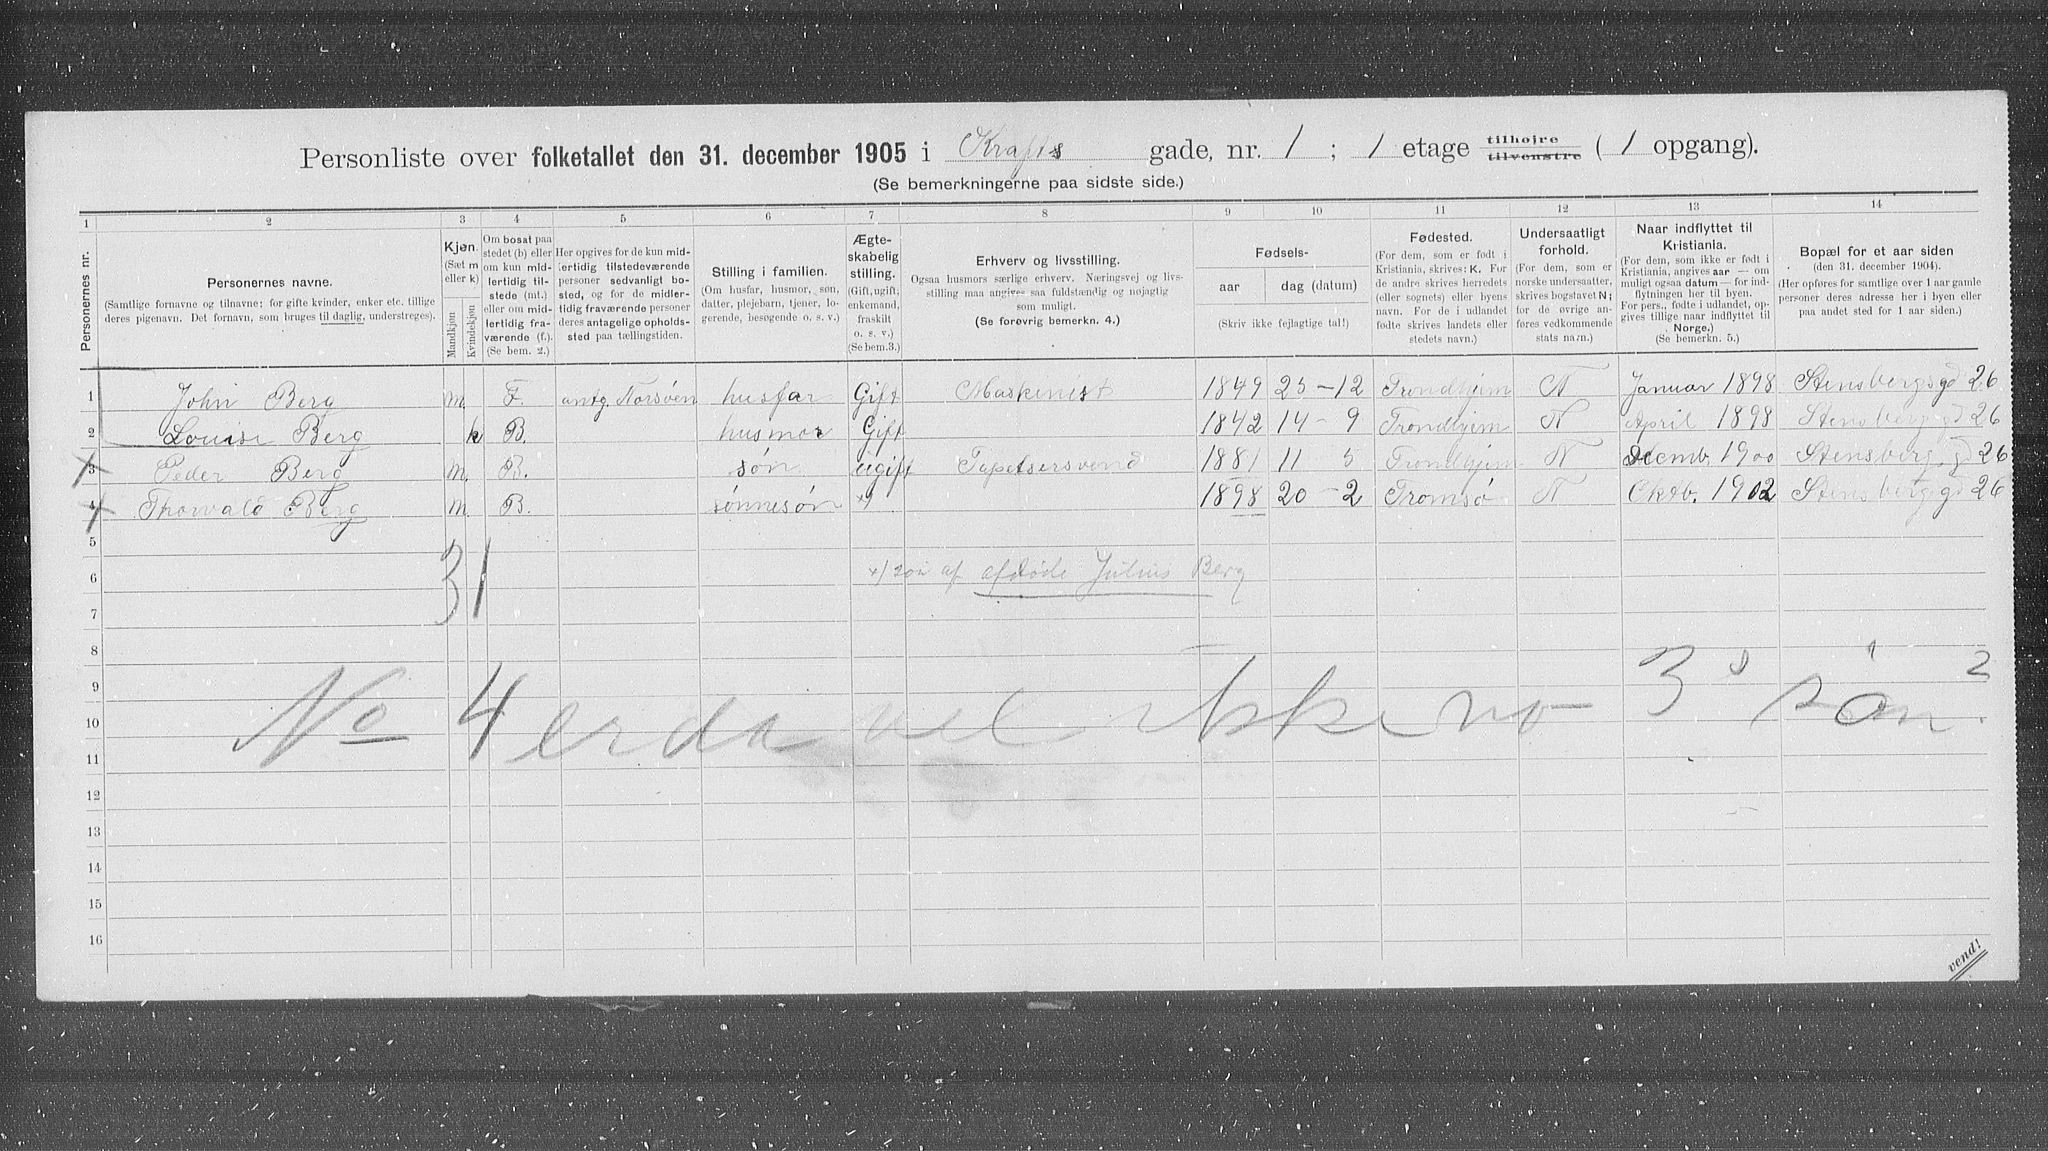 Personliste over folketallet den 31. december 1905 i Krafts gade, nr. 1 ; 1 etage tilhøjre tilvenstre ( 1 opgang).
(Se bemerkningerne paa sidste side.)
1 2 3 4 5 6 7 8 9 10 11 12 13 14
Personernes nr.
Personernes navne.
(Samtlige fornavne og tilnavne; for gifte kvinder, enker etc. tillige
deres pigenavn. Det fornavn, som bruges til daglig, understreges).
Kjøn.
(Sæt m
eller k)
Mandkjøn
Kvindekjøn
Om bosat paa
stedet (b) eller
om kun mid-
lertidig til-
stede (mt.)
eller om mid-
lertidig fra-
værende (f.).
(Se bem. 2.)
Her opgives for de kun mid-
lertidig tilstedeværende
personer sedvanligt bo-
sted, og for de midler-
tidig fraværende personer
deres antagelige opholds-
sted paa tællingstiden.
Stilling i familien.
(Om husfar, husmor, søn,
datter, plejebarn, tjener, lo-
gerende, besøgende o. s. v.)
Ægte-
skabelig
stilling.
(Gift, ugift,
enkemand,
fraskilt
o. s. v.)
(Se bem.3.)
Erhverv og livsstilling.
Ogsaa husmors særlige erhverv. Næringsvej og livs-
stilling maa angives saa fuldstændig og nøjagtig
som muligt.
(Se forøvrig bemerkn. 4.)
Fødsels-
aar
dag (datum)
(Skriv ikke fejlagtige tal!)
Fødested.
(For dem, som er født i
Kristiania, skrives: K. For
de andre skrives herredets
(eller sognets) eller byens
navn. For de i udlandet
fødte skrives landets eller
stedets navn.)
Undersaatligt
forhold.
(For dem, som er
norske undersaatter,
skrives bogstavet N;
for de øvrige an-
føres vedkommende
stats navn.)
Naar indflyttet til
Kristiania.
(For dem, som ikke er født i
Kristiania, angives aar — om
muligt ogsaa datum — for ind-
flytningen her til byen.
For pers., fødte i udlandet, op-
gives tillige naar indflyttet til
Norge.)
(Se bemerkn. 5.)
Bopæl for et aar siden
(den 31. december 1904).
(Her opføres for samtlige over 1 aar gamle
personer deres adresse her i byen eller
paa andet sted for 1 aar siden.)
1 John Berg m. F. antg. Norsöen husfar Gift Maskinist 1849 25-12 Trondhjem N Januar 1898 Stensbergsgd 26
2 Louise Berg k B. husmor Gift 1842 14-9 Trondhjem N April 1898 Stensbergsgd 26
3 Peder Berg m. B. søn ugift Tapetsersvend 1881 11 5 Trondhjem N Decemb. 1900 Stensbergsgd 26
4 Thorvald Berg m. B. sönnesön x) 1898 20-2 Tromsö N Oktb. 1902 Stensbergsgd 26
5
6 x) søn af afdöde Julius Berg
31
7
8
9
10 No 4 er da vel ikke no 3's søn?
11
12
13
14
15
16
vend!